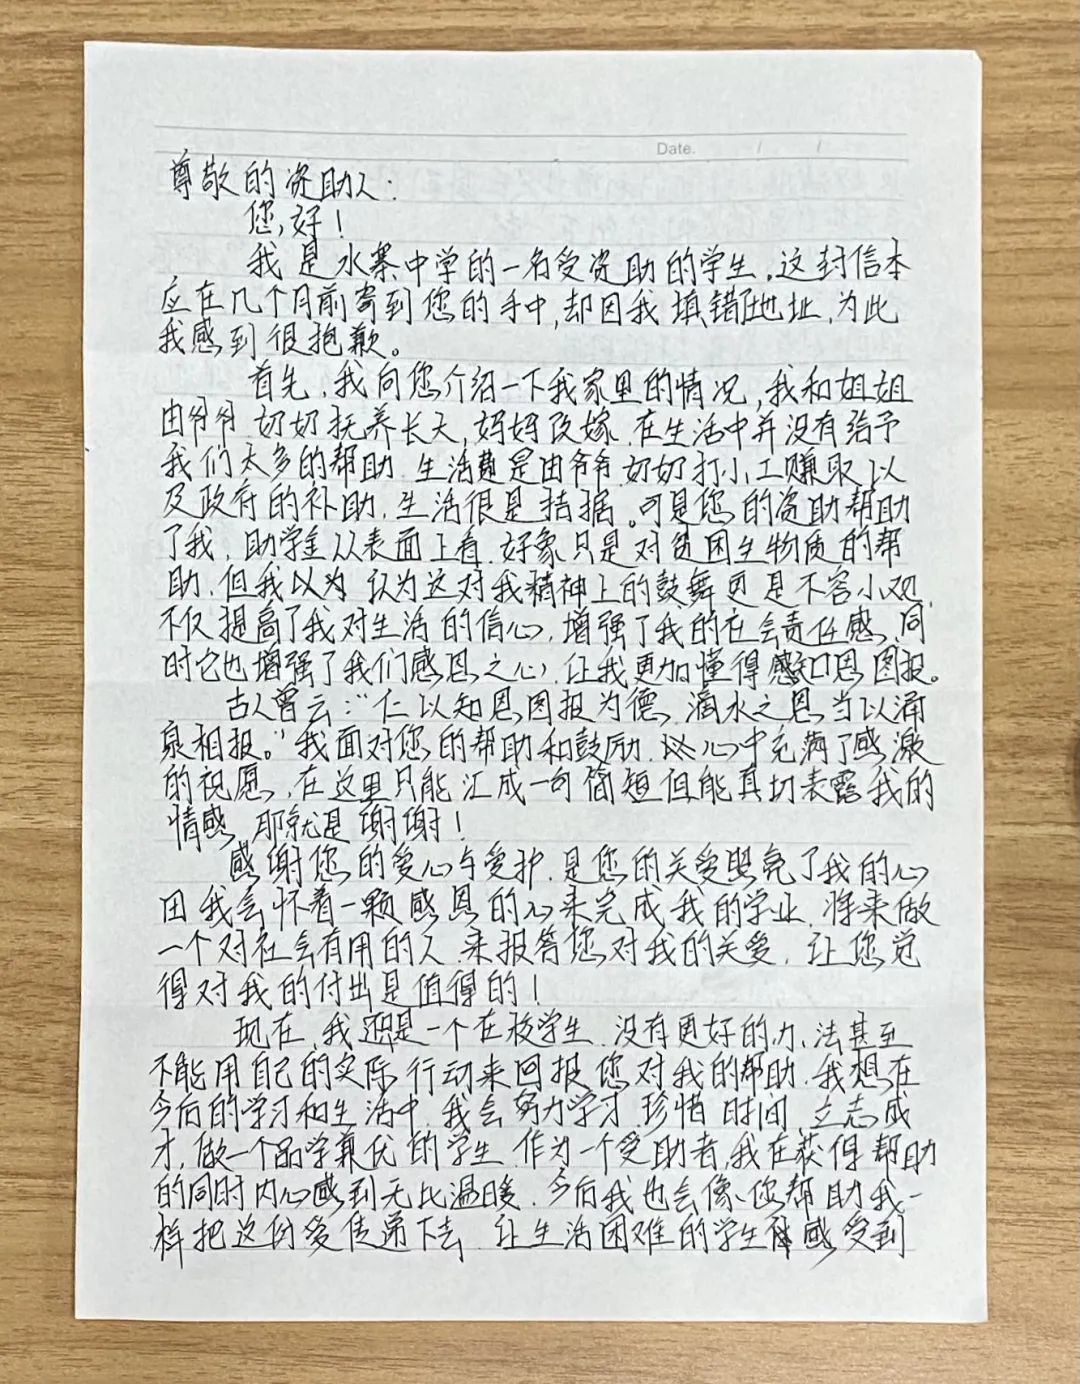 Date. / /
尊敬的资助人:
您好!
我是水寨中学的一名受资助的学生。这封信本
应在几个月前寄到您的手中,却因我填错了地址,为此
我感到很抱歉。
首先,我向您介绍一下我家里的情况,我和姐姐
由爷爷奶奶抚养长大,妈妈改嫁.在生活中并没有给予
我们太多的帮助.生活费是由爷爷奶奶打小工赚取以
及政府的补助.生活很是拮据。可是您的资助帮助
了我,助学金从表面上看.好象只是对贫困生物质的帮
助.但我以为认为这对我精神上的鼓舞更是不容小观,
不仅提高了我对生活的信心,增强了我的社会责任感,同
时它也增强了我们感恩之心,让我更加懂得感知恩图报。
古人曾云:“仁以知恩图报为德,滴水之恩当以涌
泉相报。”我面对您的帮助和鼓励.心中充满了感激
的祝愿,在这里只能汇成一句简短但能真切表露我的
情感,那就是谢谢!
感谢您的爱心与爱护.是您的关爱照亮了我的心
田我会怀着一颗感恩的心来完成我的学业.将来做
一个对社会有用的人来报答您对我的关爱.让您觉
得对我的付出是值得的!
现在,我还是一个在校学生.没有更好的办法甚至
不能用自己的实际行动来回报您对我的帮助.我想在
今后的学习和生活中.我会努力学才珍惜时间,立志成
才,做一个品学兼优的学生.作为一个受助者,我在获得帮助
的同时内心感到无比温暖.今后我也会像您帮助我一
样把这份爱传递下去.让生活困难的学生感受到